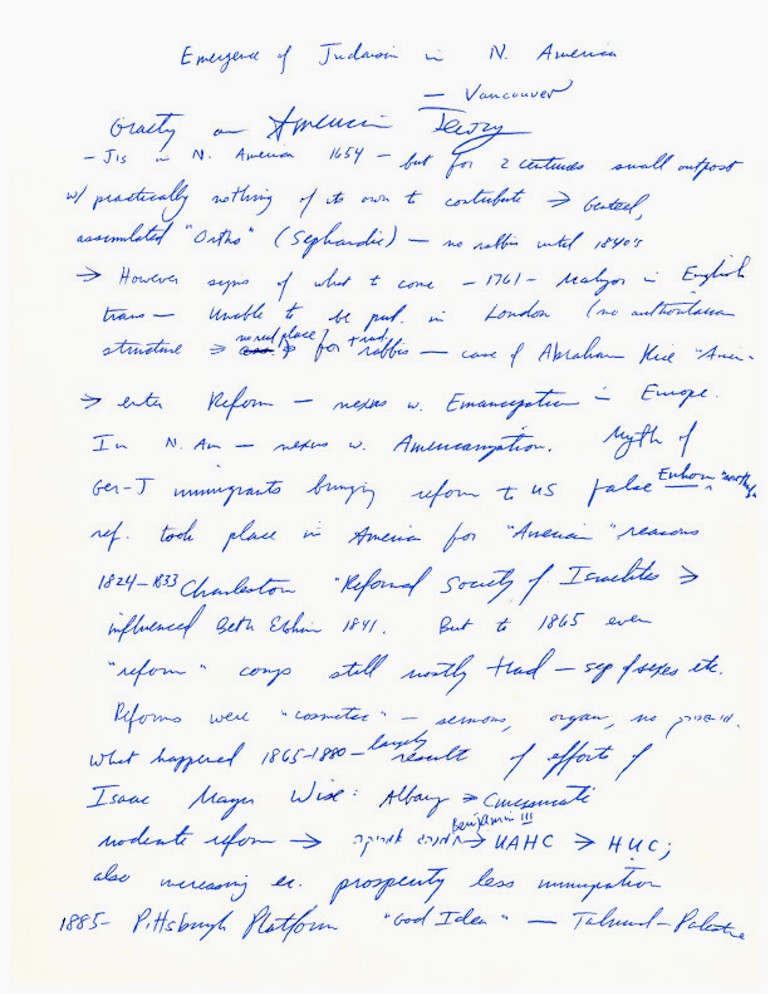 Emergence of Judaism in N. America
— Vancouver
Graetz on American Jewry
– J's in N. America 1654 – but for 2 centuries small outpost
w/ practically nothing of its own to contribute → Genteel,
assimilated "Ortho" (Sephardic) – no rabbis until 1840's
→ However signs of what to come – 1761 – Mahzor in English
trans – Unable to be pub. in London (no authoritarian
structure → no real place for trad. rabbis – case of Abraham Rice
→ enter Reform – nexus w. Emancipation in Europe.
In N. Am – nexus w. Americanization. Myth of
Ger-J immigrants bringing reform to US false
ref. took place in America for "American" reasons
1824–1833 Charleston "Reformed Society of Israelites →
influenced Beth Elohim 1841. But to 1865 even
"reform" congs still mostly trad – sep of sexes etc.
Reforms were "cosmetic" – sermons, organ, no
What happened 1865–1880 – largely result of efforts of
Isaac Mayer Wise: Albany → Cincinnati
Benjamin III
moderate reform → מנהג אמריקה → UAHC → HUC;
also increasing ec. prosperity less immigration
1885– Pittsburgh Platform "God Idea" – Talmud – Palestine